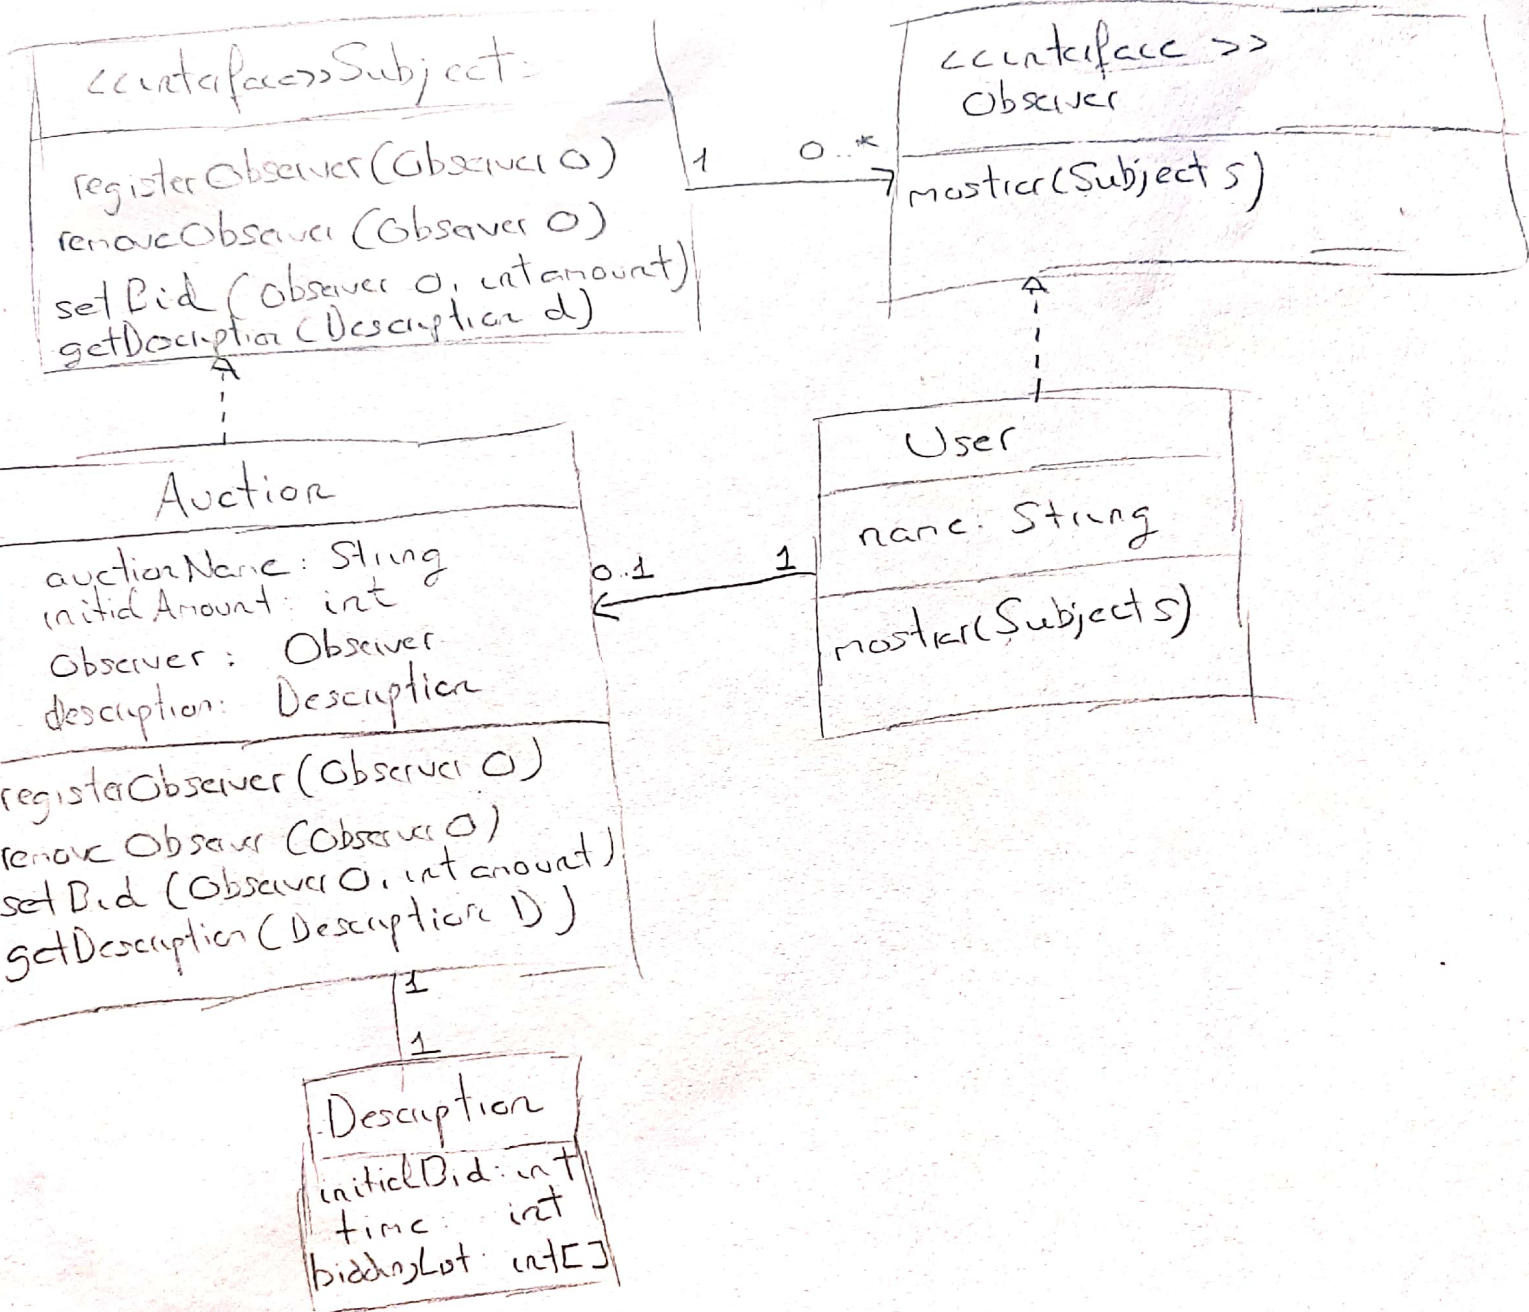 <<interface>> Subject
registerObserver(Observer O)
removeObserver (Observer O)
setBid (Observer O, int amount)
getDescription (Description d)
1
0..*
<<interface>>
Observer
mostrar(Subject s)
Auction
auctionName: String
initialAmount: int
Observer: Observer
description: Description
registerObserver (Observer O)
remove Observer (Observer O)
set Bid (Observer O, int amount)
getDescription (Description D)
0..1
1
User
name: String
mostrar(Subject s)
1
1
Description
initialBid: int
time: int
biddingLot: int[]